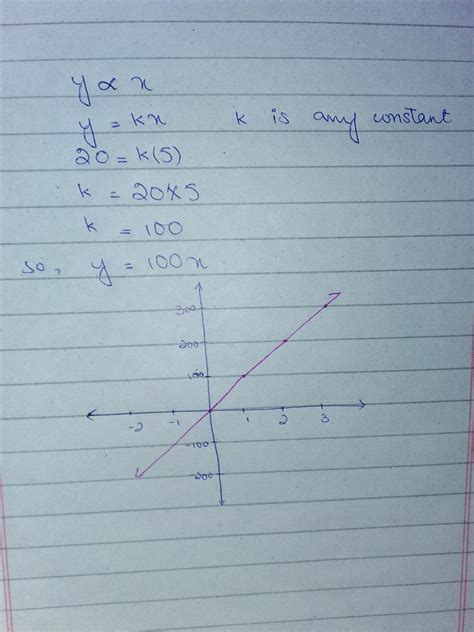 y ∝ x
y = kx k is any constant
20 = k(5)
k = 20×5
k = 100
so, y = 100x
300
200
100
-2 -1 1 2 3
-100
-200